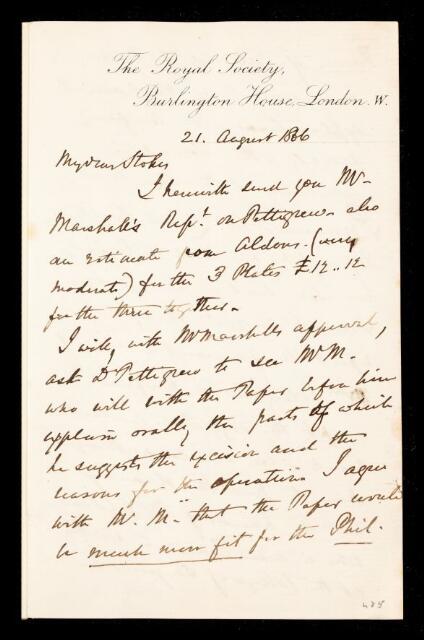 The Royal Society,
Burlington House, London. W.
21. August 1866
My dear Stokes
I herewith send you Mr.
Marshall's Rep.t on Pettigrew. also
an estimate from Aldous. (very
moderate) for the 3 Plates £12..12
for the three together.
I will, with Mr Marshalls approval,
ask Dr Pettigrew to see Mr M.
who will with the Paper before him
explain orally the parts of which
he suggests the excision and the
reasons for the operation. I agree
with Mr. M. that the Paper would
be much more fit for the Phil.